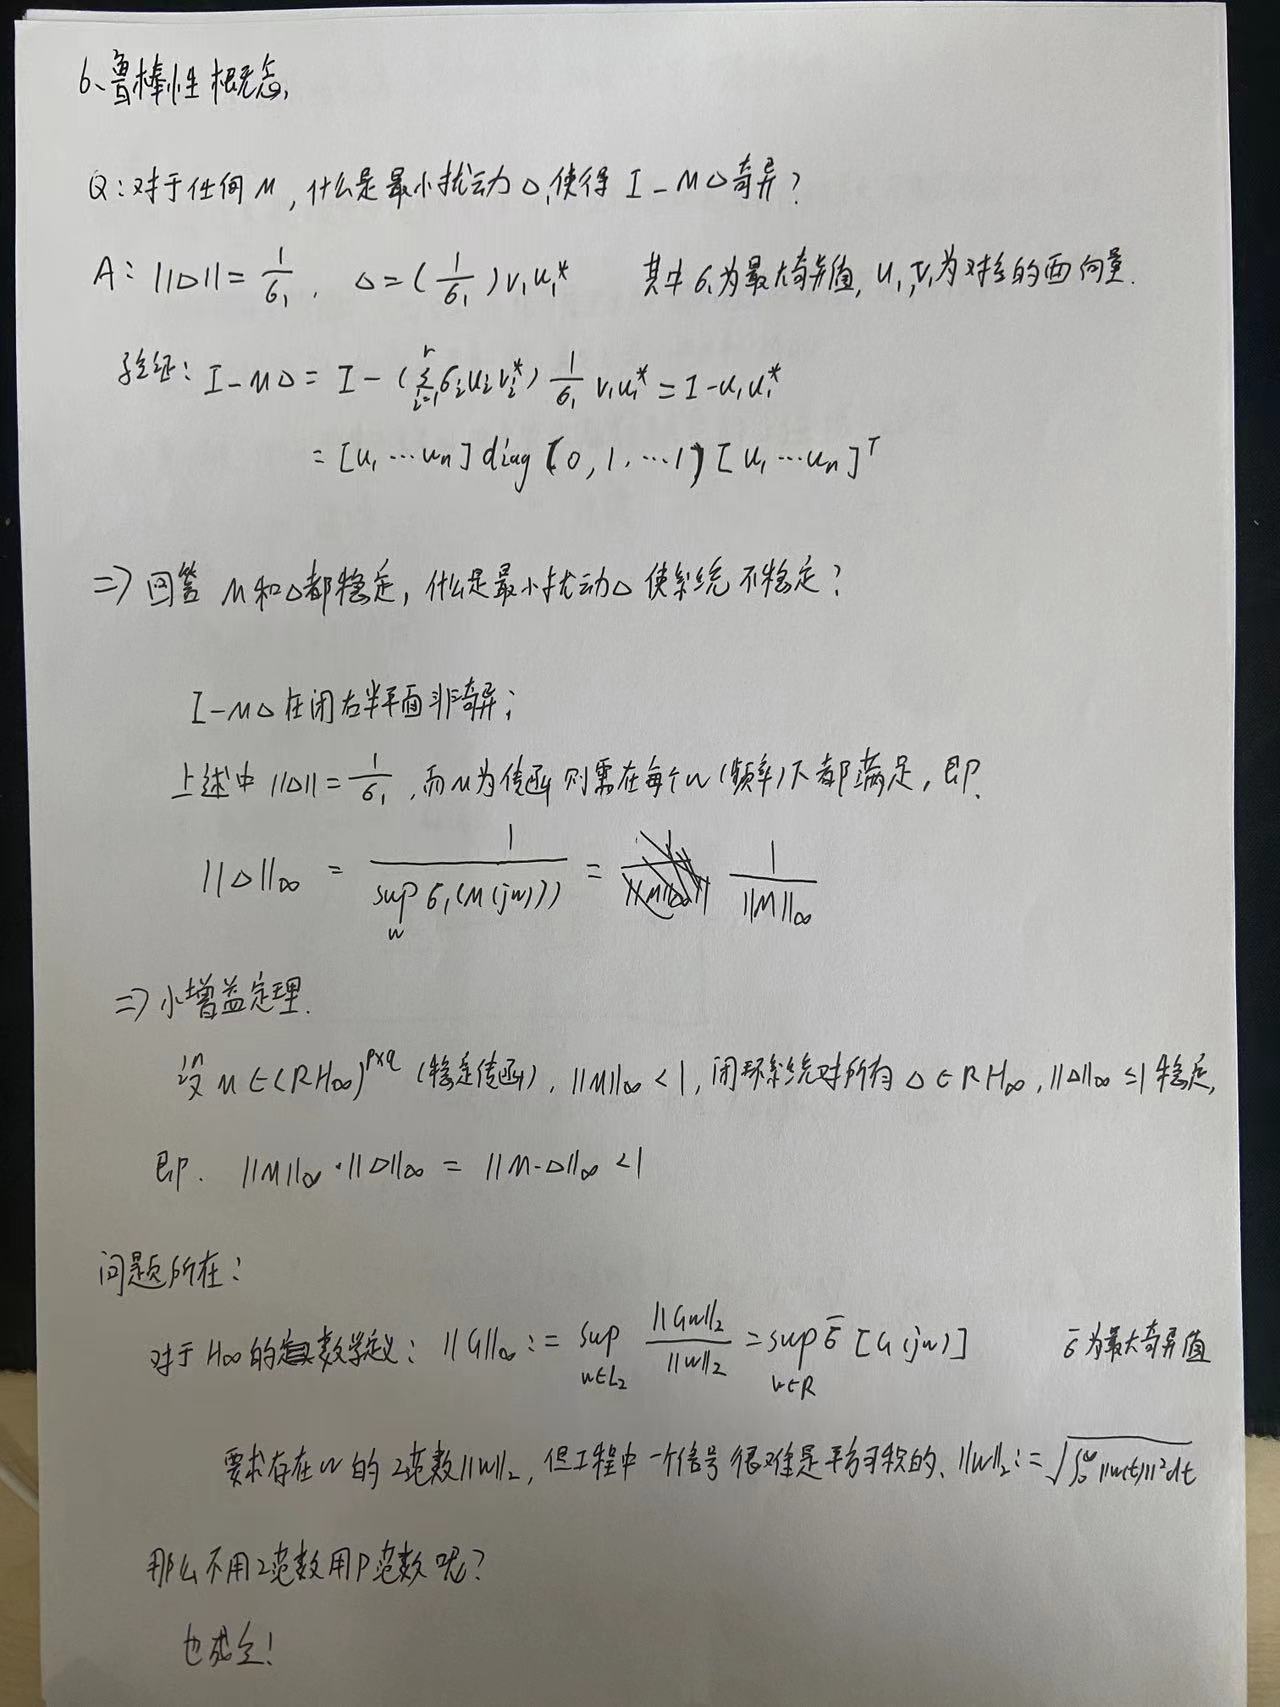 6、鲁棒性概念,
Q:对于任何M,什么是最小扰动Δ,使得 I-MΔ奇异?
A: ||Δ||=1/σ₁. Δ=(1/σ₁)v₁u₁* 其中σ₁为最大奇异值,u₁,v₁为对应的酉向量.
验证: I-MΔ = I-(∑ᵢ₌₁ʳσᵢuᵢvᵢ*)1/σ₁ v₁u₁* = I-u₁u₁*
=[u₁…uₙ]diag(0,1.…1)[u₁…uₙ]ᵀ
⇒回答 M和Δ都稳定,什么是最小扰动Δ使系统不稳定?
I-MΔ在闭右半平面非奇异;
上述中||Δ||=1/σ₁,而M为传函则需在每个w(频率)下都满足,即.
||Δ||∞ = 1/(sup_w σ₁(M(jw))) = 1/||M||∞
⇒小增益定理.
设M∈(RH∞)^(p×q)(稳定传函),||M||∞<1,闭环系统对所有Δ∈RH∞,||Δ||∞≤1稳定,
即. ||M||∞·||Δ||∞ = ||M·Δ||∞ <1
问题所在:
对于H∞的数学定义: ||G||∞:= sup_{w∈L₂} ||Gw||₂/||w||₂ = sup_{w∈R} σ̄[G(jw)] σ̄为最大奇异值
要求存在w的2范数||w||₂,但工程中一个信号很难是平方可积的、||w||₂:=√(∫₀^∞||w(t)||²dt)
那么不用2范数用P范数呢?
也成立!